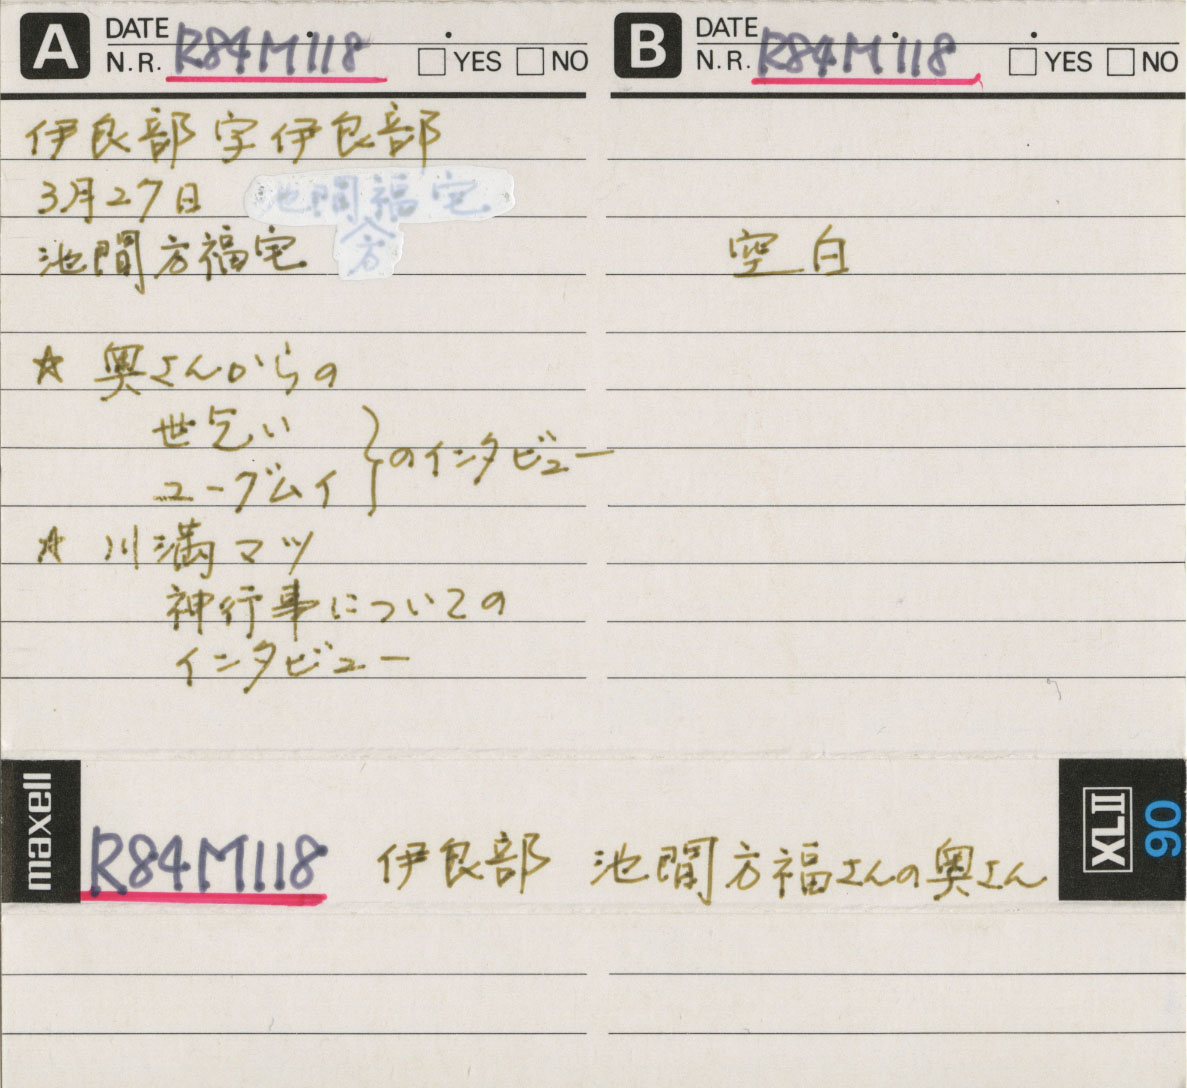 A DATE
N.R. R84M118 YES NO
伊良部字伊良部
3月27日 池間福宅
方
池間方福宅
☆ 奥さんからの
世乞い
ユーグムイ } のインタビュー
☆ 川満マツ
神行事についての
インタビュー
B DATE
N.R. R84M118 YES NO
空白
maxell R84M118 伊良部 池間方福さんの奥さん XLII 90